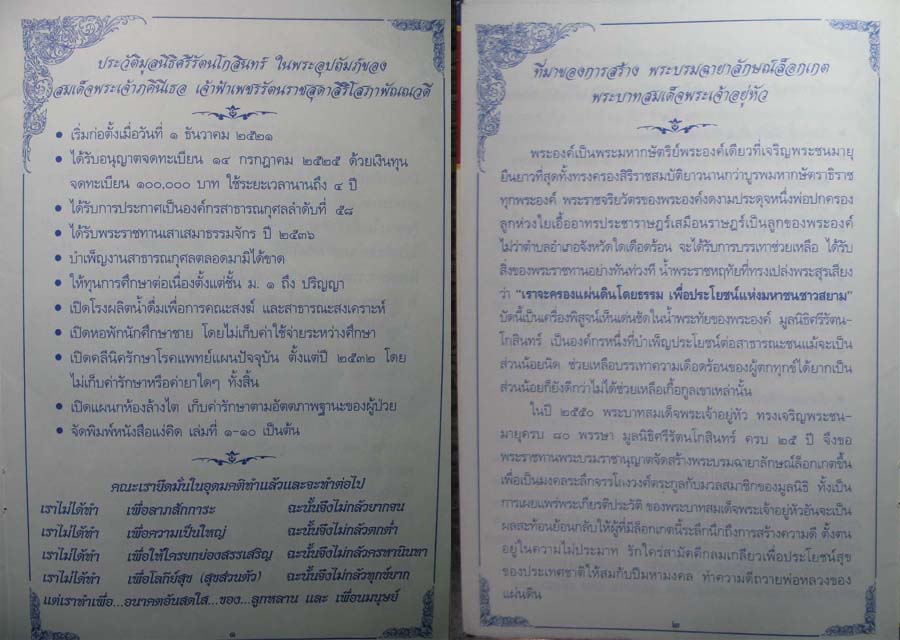 ประวัติมูลนิธิศรีรัตนโกสินทร์ ในพระอุปถัมภ์ของ
สมเด็จพระเจ้าภคินีเธอ เจ้าฟ้าเพชรรัตนราชสุดาสิริโสภาพัณณวดี
• เริ่มก่อตั้งเมื่อวันที่ ๑ ธันวาคม ๒๕๒๑
• ได้รับอนุญาตจดทะเบียน ๑๔ กรกฎาคม ๒๕๒๕ ด้วยเงินทุน
จดทะเบียน ๑๐๐,๐๐๐ บาท ใช้ระยะเวลานานถึง ๔ ปี
• ได้รับการประกาศเป็นองค์กรสาธารณกุศลลำดับที่ ๕๘
• ได้รับพระราชทานเสาเสมาธรรมจักร ปี ๒๕๓๖
• บำเพ็ญงานสาธารณกุศลตลอดมามิได้ขาด
• ให้ทุนการศึกษาต่อเนื่องตั้งแต่ชั้น ม. ๑ ถึง ปริญญา
• เปิดโรงผลิตน้ำดื่มเพื่อการคณะสงฆ์ และสาธารณะสงเคราะห์
• เปิดหอพักนักศึกษาชาย โดยไม่เก็บค่าใช้จ่ายระหว่างศึกษา
• เปิดคลีนิครักษาโรคแพทย์แผนปัจจุบัน ตั้งแต่ปี ๒๕๓๒ โดย
ไม่เก็บค่ารักษาหรือค่ายาใดๆ ทั้งสิ้น
• เปิดแผนกห้องล้างไต เก็บค่ารักษาตามอัตตภาพฐานะของผู้ป่วย
• จัดพิมพ์หนังสือแง่คิด เล่มที่ ๑-๑๐ เป็นต้น
คณะเรายึดมั่นในอุดมคติทำแล้วและจะทำต่อไป
เราไม่ได้ทำ เพื่อลาภสักการะ ฉะนั้นจึงไม่กลัวยากจน
เราไม่ได้ทำ เพื่อความเป็นใหญ่ ฉะนั้นจึงไม่กลัวตกต่ำ
เราไม่ได้ทำ เพื่อให้ใครยกย่องสรรเสริญ ฉะนั้นจึงไม่กลัวครหานินทา
เราไม่ได้ทำ เพื่อโลกีย์สุข (สุขส่วนตัว) ฉะนั้นจึงไม่กลัวทุกข์ยาก
แต่เราทำเพื่อ...อนาคตอันสดใส...ของ...ลูกหลาน และ เพื่อนมนุษย์
๑
ที่มาของการสร้าง พระบรมฉายาลักษณ์ล็อกเกต
พระบาทสมเด็จพระเจ้าอยู่หัว
พระองค์เป็นพระมหากษัตริย์พระองค์เดียวที่เจริญพระชนมายุ
ยืนยาวที่สุดทั้งทรงครองสิริราชสมบัติยาวนานกว่าบูรพมหากษัตราธิราช
ทุกพระองค์ พระราชจริยวัตรของพระองค์งดงามประดุจหนึ่งพ่อปกครอง
ลูกห่วงใยเอื้ออาทรประชาราษฎร์เสมือนราษฎร์เป็นลูกของพระองค์
ไม่ว่าตำบลอำเภอจังหวัดใดเดือดร้อน จะได้รับการบรรเทาช่วยเหลือ ได้รับ
สิ่งของพระราชทานอย่างทันท่วงที น้ำพระราชหฤทัยที่ทรงเปล่งพระสุรเสียง
ว่า "เราจะครองแผ่นดินโดยธรรม เพื่อประโยชน์แห่งมหาชนชาวสยาม"
บัดนี้เป็นเครื่องพิสูจน์เห็นเด่นชัดในน้ำพระทัยของพระองค์ มูลนิธิศรีรัตน-
โกสินทร์ เป็นองค์กรหนึ่งที่บำเพ็ญประโยชน์ต่อสาธารณะชนแม้จะเป็น
ส่วนน้อยนิด ช่วยเหลือบรรเทาความเดือดร้อนของผู้ตกทุกข์ได้ยากเป็น
ส่วนน้อยก็ยังดีกว่าไม่ได้ช่วยเหลือเกื้อกูลเขาเหล่านั้น
ในปี ๒๕๕๐ พระบาทสมเด็จพระเจ้าอยู่หัว ทรงเจริญพระชน-
มายุครบ ๘๐ พรรษา มูลนิธิศรีรัตนโกสินทร์ ครบ ๒๕ ปี จึงขอ
พระราชทานพระบรมราชานุญาตจัดสร้างพระบรมฉายาลักษณ์ล็อกเกตขึ้น
เพื่อเป็นมงคลระลึกจรรโลงวงศ์ตระกูลกับมวลสมาชิกของมูลนิธิ ทั้งเป็น
การเผยแพร่พระเกียรติประวัติ ของพระบาทสมเด็จพระเจ้าอยู่หัวอันจะเป็น
ผลสะท้อนย้อนกลับให้ผู้ที่มีล็อกเกตนี้ระลึกนึกถึงการสร้างความดี ตั้งตน
อยู่ในความไม่ประมาท รักใคร่สามัคคีกลมเกลียวเพื่อประโยชน์สุข
ของประเทศชาติให้สมกับปีมหามงคล ทำความดีถวายพ่อหลวงของ
แผ่นดิน
๒